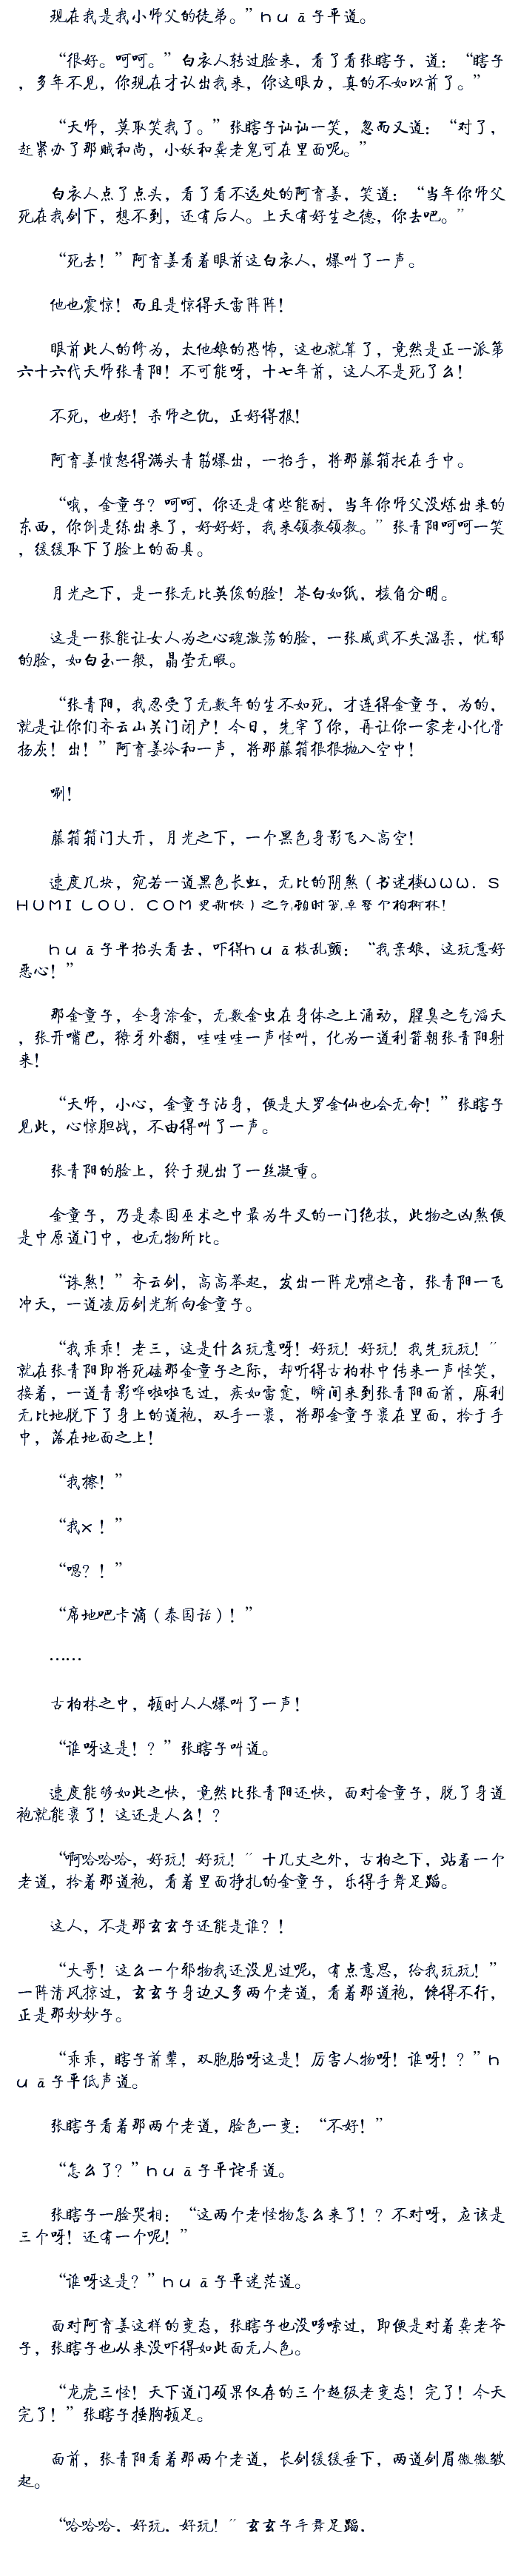 现在我是我小师父的徒弟。”huā子平道。
“很好。呵呵。”白衣人转过脸来，看了看张瞎子，道：“瞎子
，多年不见，你现在才认出我来，你这眼力，真的不如以前了。”
“天师，莫取笑我了。”张瞎子讪讪一笑，忽而又道：“对了，
赶紧办了那贼和尚，小妖和龚老鬼可在里面呢。”
白衣人点了点头，看了看不远处的阿育姜，笑道：“当年你师父
死在我剑下，想不到，还有后人。上天有好生之德，你去吧。”
“死去！”阿育姜看着眼前这白衣人，爆叫了一声。
他也震惊！而且是惊得天雷阵阵！
眼前此人的修为，太他娘的恐怖，这也就算了，竟然是正一派第
六十六代天师张青阳！不可能呀，十七年前，这人不是死了么！
不死，也好！杀师之仇，正好得报！
阿育姜愤怒得满头青筋爆出，一抬手，将那藤箱托在手中。
“哦，金童子？呵呵，你还是有些能耐，当年你师父没炼出来的
东西，你倒是练出来了，好好好，我来领教领教。”张青阳呵呵一笑
，缓缓取下了脸上的面具。
月光之下，是一张无比英俊的脸！苍白如纸，棱角分明。
这是一张能让女人为之心魂激荡的脸，一张威武不失温柔，忧郁
的脸，如白玉一般，晶莹无暇。
“张青阳，我忍受了无数年的生不如死，才连得金童子，为的，
就是让你们齐云山关门闭户！今日，先宰了你，再让你一家老小化骨
扬灰！出！”阿育姜冷和一声，将那藤箱狠狠抛入空中！
唰！
藤箱箱门大开，月光之下，一个黑色身影飞入高空！
速度几块，宛若一道黑色长虹，无比的阴煞（书迷楼WWW．S
HUMILOU．COM更新快）之气顿时笼罩整个柏树林！
huā子平抬头看去，吓得huā枝乱颤：“我亲娘，这玩意好
恶心！”
那金童子，全身涂金，无数金虫在身体之上涌动，腥臭之气滔天
，张开嘴巴，獠牙外翻，哇哇哇一声怪叫，化为一道利箭朝张青阳射
来！
“天师，小心，金童子沾身，便是大罗金仙也会无命！”张瞎子
见此，心惊胆战，不由得叫了一声。
张青阳的脸上，终于现出了一丝凝重。
金童子，乃是泰国巫术之中最为牛叉的一门绝技，此物之凶煞便
是中原道门中，也无物所比。
“诛煞！”齐云剑，高高举起，发出一阵龙啸之音，张青阳一飞
冲天，一道凌厉剑光斩向金童子。
“我乖乖！老三，这是什么玩意呀！好玩！好玩！我先玩玩！”
就在张青阳即将死磕那金童子之际，却听得古柏林中传来一声怪笑，
接着，一道青影哗啦啦飞过，疾如雷霆，瞬间来到张青阳面前，麻利
无比地脱下了身上的道袍，双手一裹，将那金童子裹在里面，拎于手
中，落在地面之上！
“我擦！”
“我x！”
“嗯？！”
“席地吧卡滴（泰国话）！”
……
古柏林之中，顿时人人爆叫了一声！
“谁呀这是！？”张瞎子叫道。
速度能够如此之快，竟然比张青阳还快，面对金童子，脱了身道
袍就能裹了！这还是人么！？
“啊哈哈哈，好玩！好玩！”十几丈之外，古柏之下，站着一个
老道，拎着那道袍，看着里面挣扎的金童子，乐得手舞足蹈。
这人，不是那玄玄子还能是谁？！
“大哥！这么一个邪物我还没见过呢，有点意思，给我玩玩！”
一阵清风掠过，玄玄子身边又多两个老道，看着那道袍，馋得不行，
正是那妙妙子。
“乖乖，瞎子前辈，双胞胎呀这是！厉害人物呀！谁呀！？”h
uā子平低声道。
张瞎子看着那两个老道，脸色一变：“不好！”
“怎么了？”huā子平诧异道。
张瞎子一脸哭相：“这两个老怪物怎么来了！？不对呀，应该是
三个呀！还有一个呢！”
“谁呀这是？”huā子平迷茫道。
面对阿育姜这样的变态，张瞎子也没哆嗦过，即便是对着龚老爷
子，张瞎子也从来没吓得如此面无人色。
“龙虎三怪！天下道门硕果仅存的三个超级老变态！完了！今天
完了！”张瞎子捶胸顿足。
面前，张青阳看着那两个老道，长剑缓缓垂下，两道剑眉微微皱
起。
“哈哈哈，好玩，好玩！”玄玄子手舞足蹈，